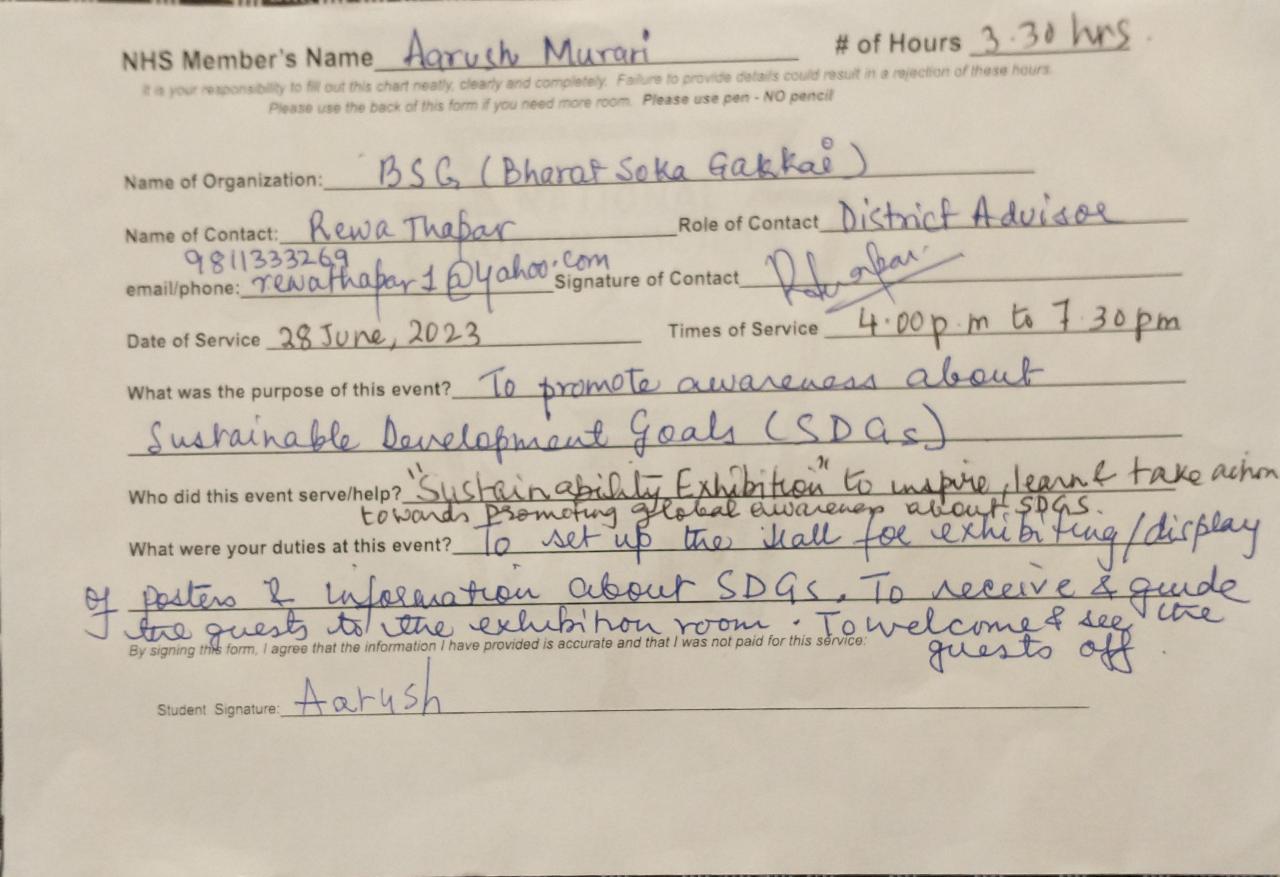 NHS Member's Name Aarush Murari # of Hours 3.30 hrs.
It is your responsibility to fill out this chart neatly, clearly and completely. Failure to provide details could result in a rejection of these hours.
Please use the back of this form if you need more room. Please use pen - NO pencil
Name of Organization: BSG (Bharat Soka Gakkai)
Name of Contact: Rewa Thapar Role of Contact District Advisor
9811333269
email/phone: rewathapar1@yahoo.com Signature of Contact
Date of Service 28 June, 2023 Times of Service 4.00 p.m to 7.30 pm
What was the purpose of this event? To promote awareness about
Sustainable Development Goals (SDGs)
Who did this event serve/help? "Sustainability Exhibition" to inspire, learn & take action
towards promoting global awareness about SDGS.
What were your duties at this event? To set up the stall for exhibiting/display
of posters & information about SDGs. To receive & guide
the guests to the exhibition room. To welcome & see the
By signing this form, I agree that the information I have provided is accurate and that I was not paid for this service: guests off.
Student Signature: Aarush